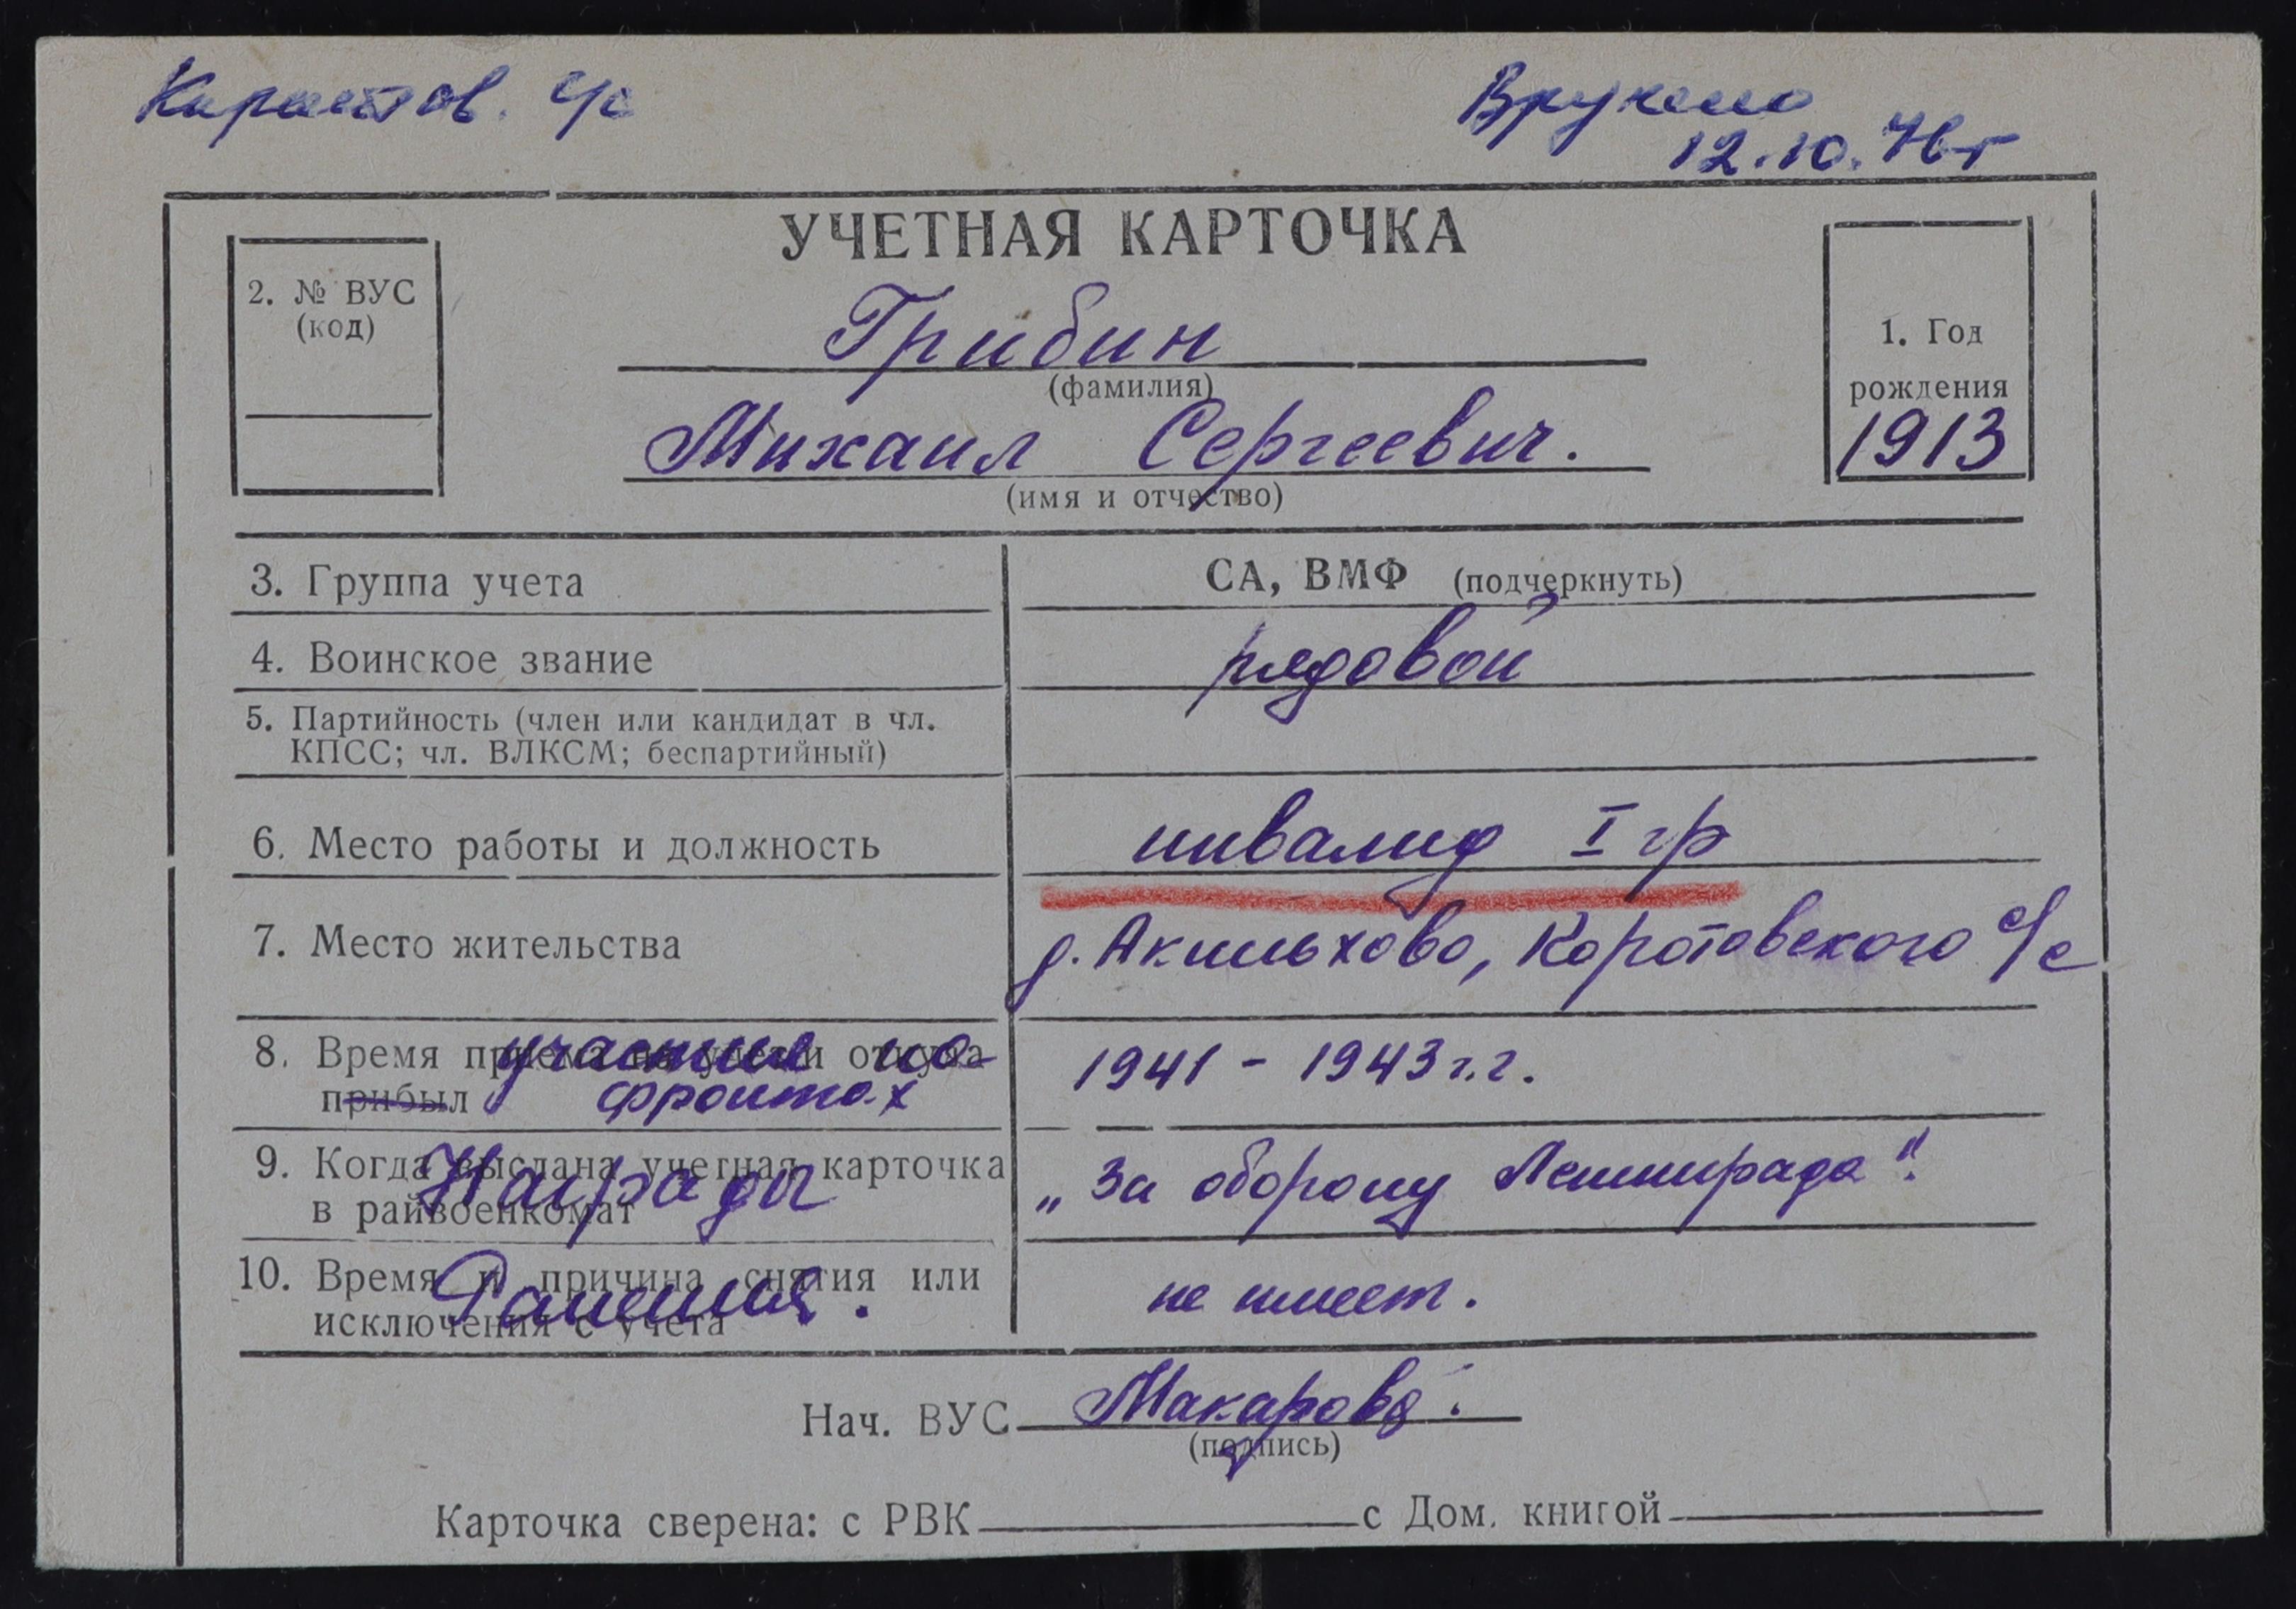 Коротов. с/с
Вручено
12.10.76г
УЧЕТНАЯ КАРТОЧКА
2. № ВУС
(код)
1. Год
рождения
1913
Грибин
(фамилия)
Михаил Сергеевич.
(имя и отчество)
3. Группа учета СА, ВМФ (подчеркнуть)
4. Воинское звание рядовой
5. Партийность (член или кандидат в чл.
КПСС; чл. ВЛКСМ; беспартийный)
6. Место работы и должность инвалид I гр
7. Место жительства д. Акильхово, Коротовского с/с
8. Время приема на учет и откуда
прибыл
участие на
фронтах
1941 - 1943 г.г.
9. Когда выслана учетная карточка
в райвоенкомат
Награды
„За оборону Ленинграда".
10. Время и причина снятия или
исключения с учета
Ранения.
не имеет.
Нач. ВУС Макарова.
(подпись)
Карточка сверена: с РВК с Дом. книгой